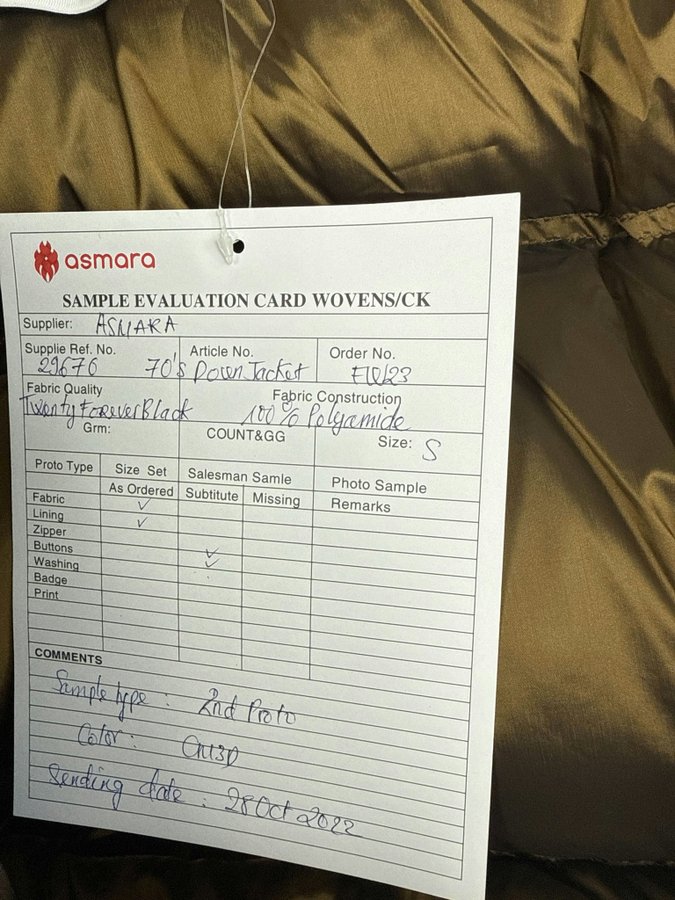 asmara
SAMPLE EVALUATION CARD WOVENS/CK
Supplier: ASMARA
Supplie Ref. No. Article No. Order No.
29676 70's Down Jacket FW23
Fabric Quality Fabric Construction
TwentyForeverBlack 100% Polyamide
Grm: COUNT&GG Size: S
Proto Type Size Set Salesman Samle Photo Sample
As Ordered Subtitute Missing Remarks
Fabric ✓
Lining ✓
Zipper
Buttons ✓
Washing ✓
Badge
Print
COMMENTS
Sample type : 2nd Proto
Color :
Sending date : 28 Oct 2022